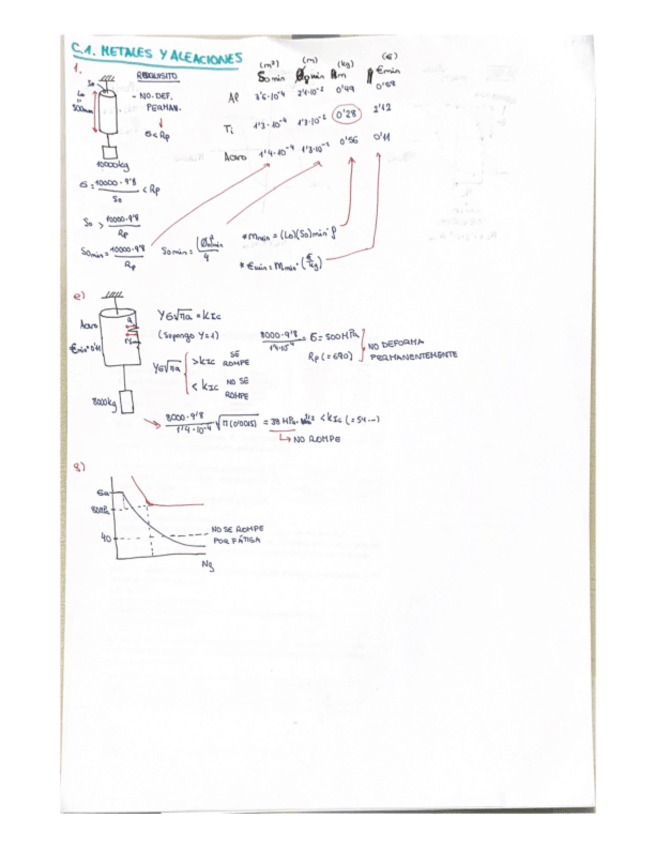 C.1. METALES Y ALEACIONES
1.
REQUISITO
- NO. DEF.
PERMAN.
σ < Rp
So
Lo
500mm
10000kg
(m²) (m) (kg) (€)
So min Øo min m €min
Al 3'6·10⁻⁴ 2'1·10⁻² 0'49 0'58
Ti 1'3·10⁻⁴ 1'3·10⁻² 0'28 2'12
Acero 1'4·10⁻⁴ 1'3·10⁻² 0'56 0'41
σ = 10000·9'8 / So < Rp
So > 10000·9'8 / Rp
So min = 10000·9'8 / Rp
So min =
* mmin = (Lo)(So)min·ρ
* €min = mmin·(€/kg)
e)
Acero
8000kg
Yσ√πa = kIc
(Supongo Y=1)
Yσ√πa
> kIc SE ROMPE
< kIc NO SE ROMPE
8000·9'8 / 1'4·10⁻⁴ = σ = 500MPa
Rp (=690)
NO DEFORMA PERMANENTEMENTE
8000·9'8 / 1'4·10⁻⁴ √π(0'0015) = 38 MPa·m^1/2 < kIc (=54...)
→ NO ROMPE
g)
σa
40
NO SE ROMPE
POR FÁTIGA